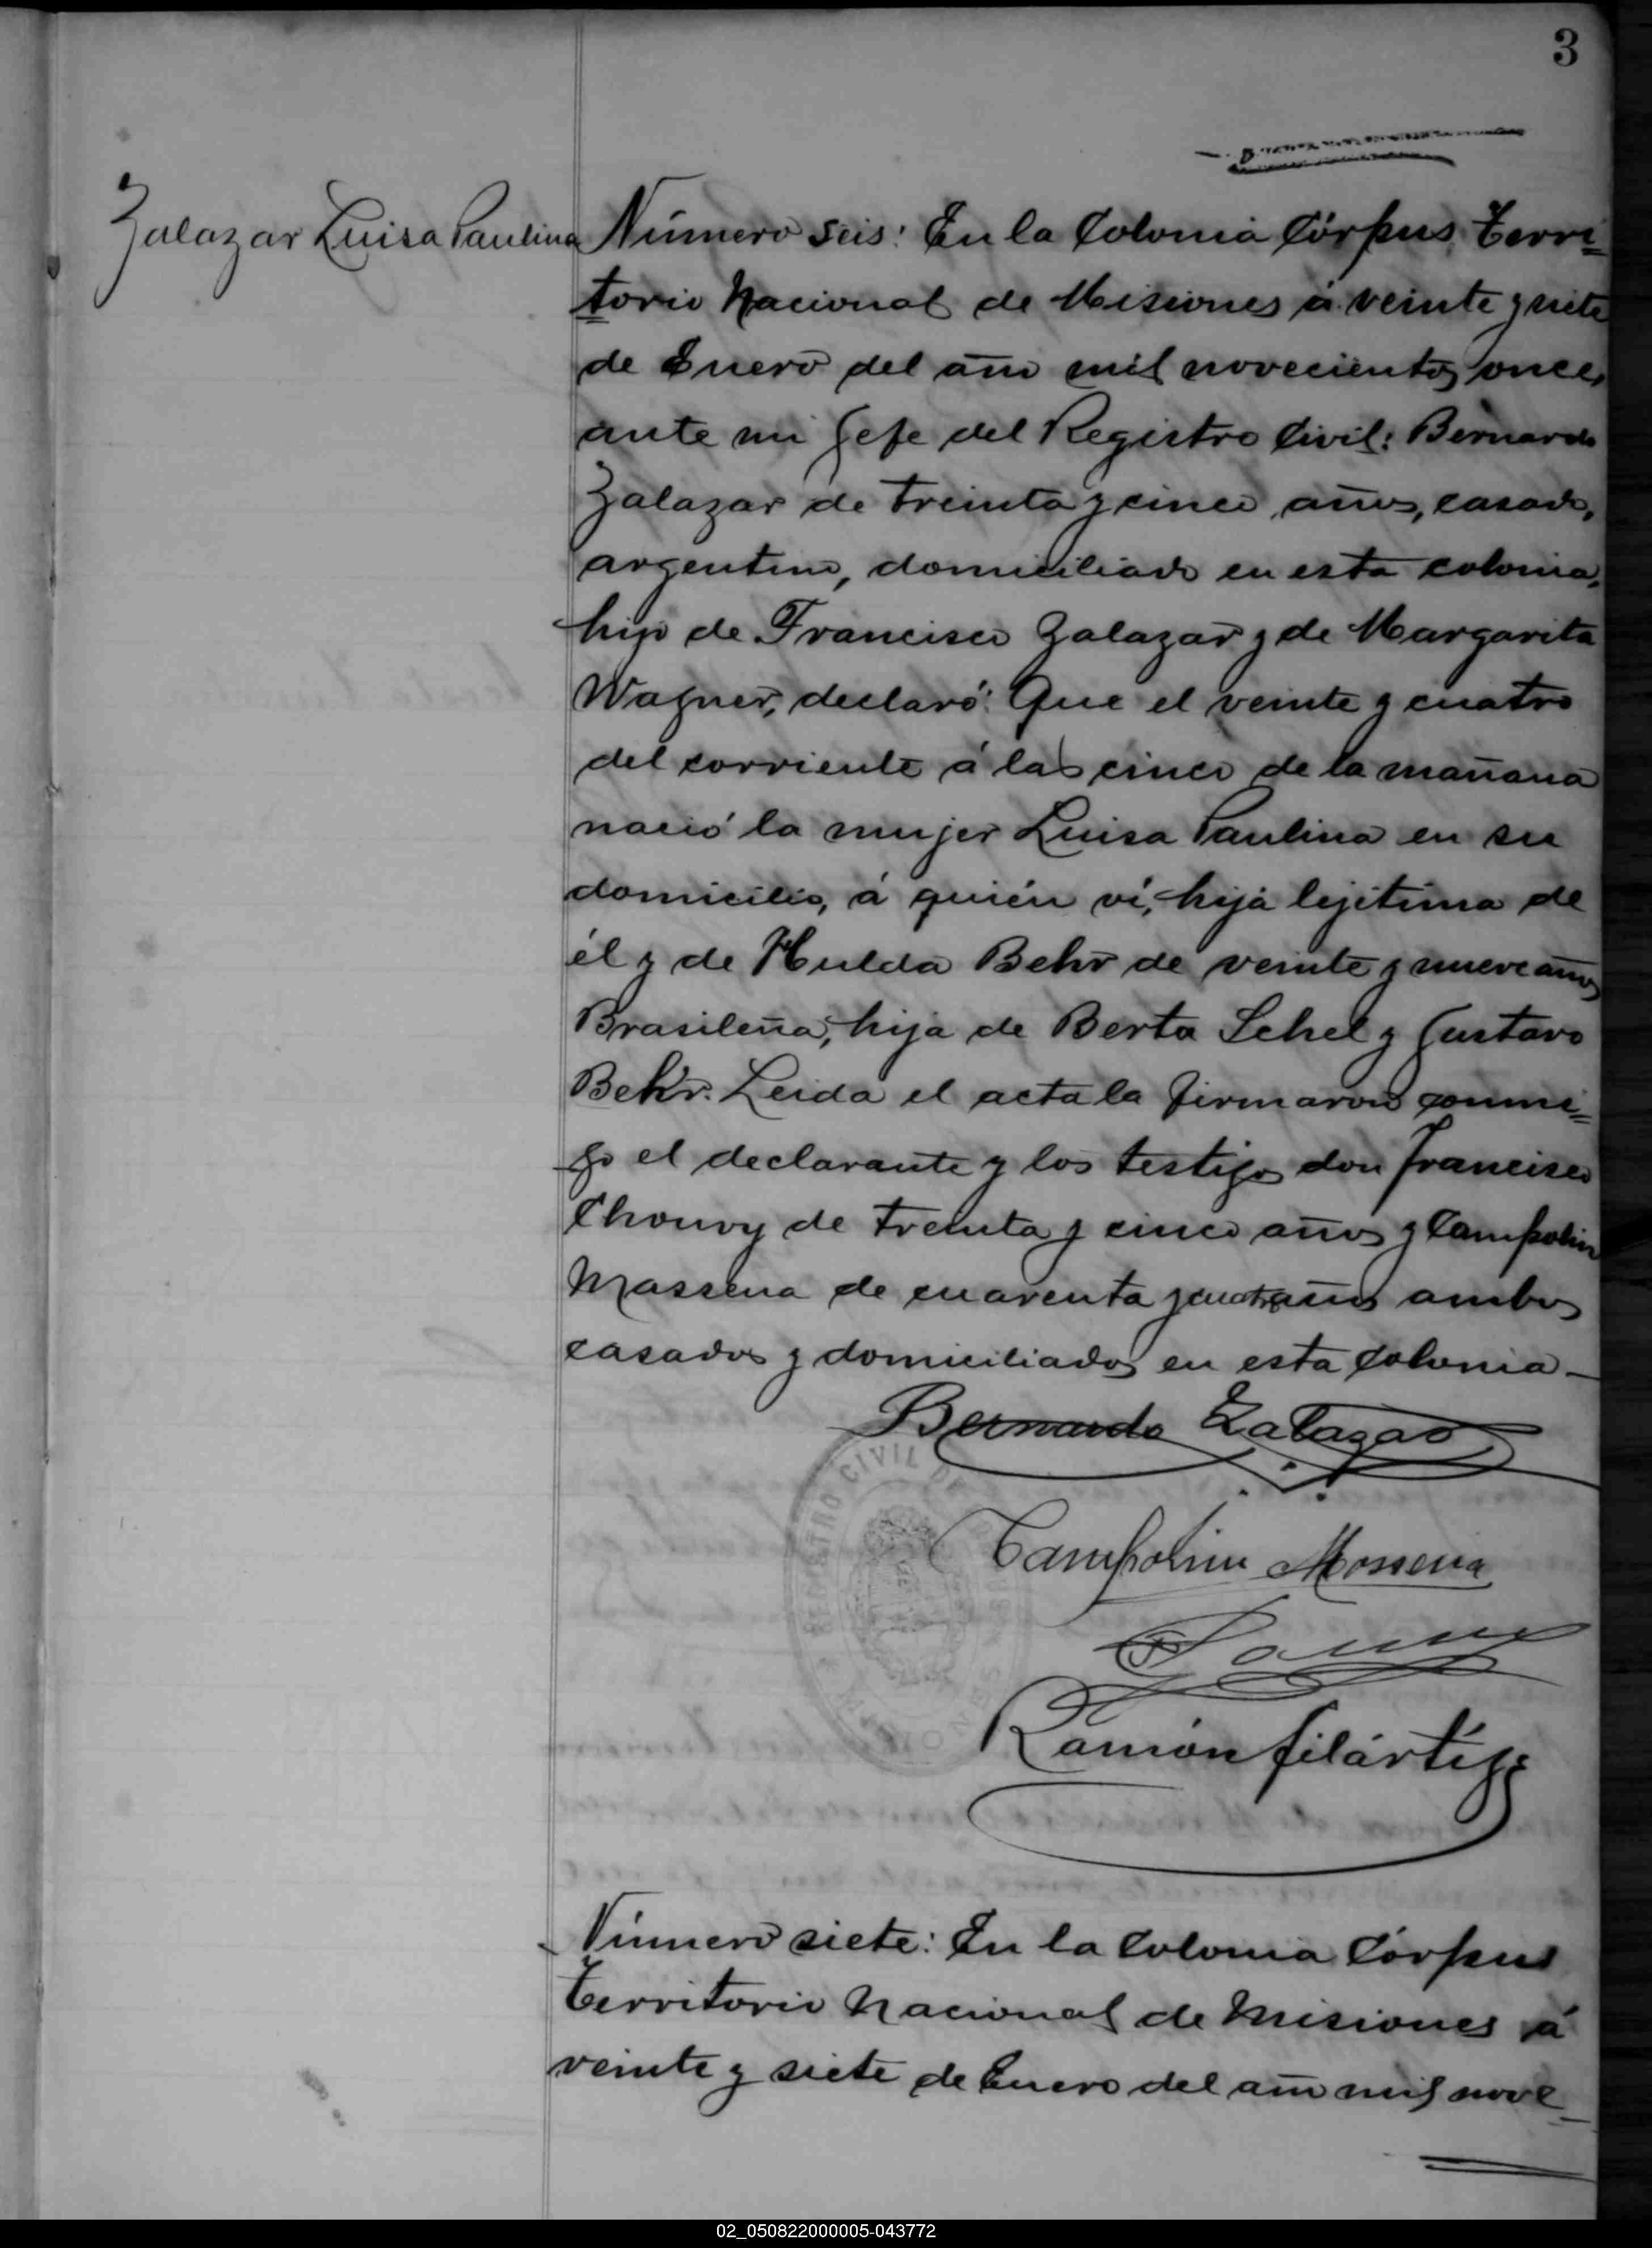 3
Zalazar Luisa Paulina
Número seis: En la Colonia Córpus, Terri=
torio Nacional de Misiones á veinte y siete
de Enero del año mil novecientos once,
ante mi Gefe del Registro Civil: Bernardo
Zalazar de treinta y cinco años, casado,
argentino, domiciliado en esta colonia,
hijo de Francisco Zalazar y de Margarita
Wagner, declaró: Que el veinte y cuatro
del corriente á las cinco de la mañana
nació la mujer Luisa Paulina en su
domicilio, á quién ví, hija lejitima de
él y de Hulda Behr de veinte y nueve años
Brasileña, hija de Berta Schel y Gustavo
Behr. Leida el acta la firmaron conmi=
go el declarante y los testigos don Francisco
Chouvy de treinta y cinco años y Campolin
Massena de cuarenta y cuatro años ambos
casados y domiciliados en esta Colonia—
Bernardo Zalazar
Campolim Massena
Ramón Filártiga
REGISTRO CIVIL DE
Número siete: En la Colonia Córpus
Territorio Nacional de Misiones á
veinte y siete de Enero del año mil nove=
02_050822000005-043772